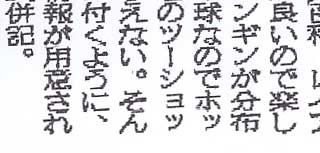 良いので楽し
ンギンが分布
球なのでホッ
のツーショッ
えない。そん
付くように、
報が用意され
併記。